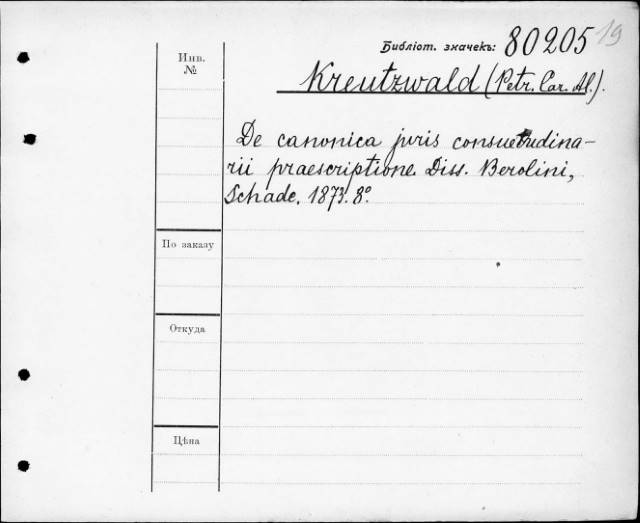 Библіот. значекъ: 80205 19
Инв. №
Kreutzwald (Petr. Car. Al.).
De canonica juris consuetudina-
rii praescriptione. Diss. Berolini,
Schade. 1873. 8º.
По заказу
Откуда
Цѣна